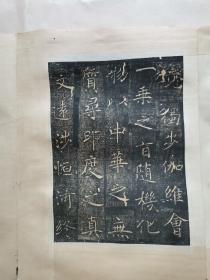 境獨步伽維會
一乘之旨隨機化
物以中華之無
質尋印度之真
文遠涉恒河終